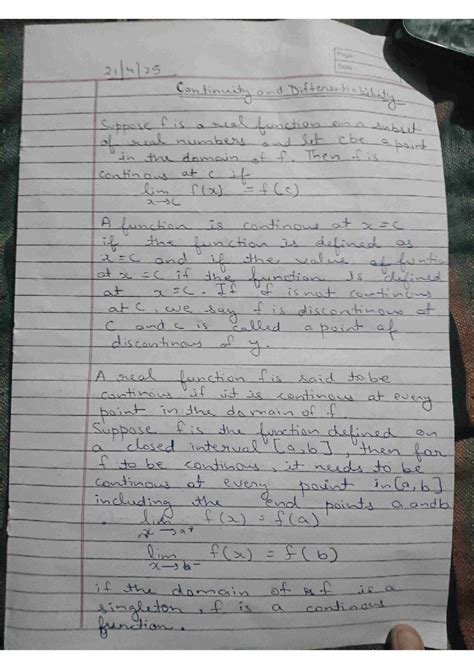 Page:
Date:
21/4/25
Continuity and Differentiability
Suppose f is a real function on a subset
of real numbers and let c be a point
in the domain of f. Then f is
continous at c if
lim f(x) = f(c)
x→c
A function is continous at x = c
if the function is defined as
x = c and if the value of functio
at x = c if the function is defined
at x = c. If f is not continous
at c, we say f is discontinous at
c and c is called a point of
discontinous of y.
A real function f is said to be
continous if it is continous at every
point in the domain of f.
Suppose f is the function defined on
a closed interval [a,b], then for
f to be continous, it needs to be
continous at every point in [a,b]
including the end points a and b.
lim f(x) = f(a)
x→a+
lim f(x) = f(b)
x→b-
if the domain of f is a
singleton, f is a continous
function.